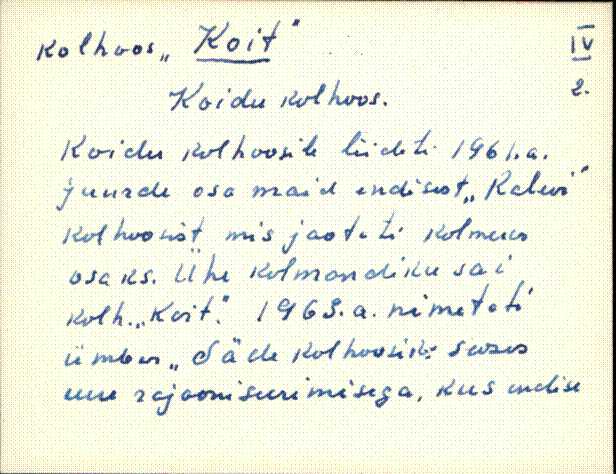 kolhoos „Koit" IV
2.
Koidu kolhoos.
Koidu kolhoosile liideti 1961.a.
juurde osa maid endisest „Kalevi"
kolhoosist mis jaotati kolmeks
osaks. Ühe kolmandiku sai
kolh. „Koit". 1963.a. nimetati
ümber „Säde kolhoosiks seoses
uue rajooniseerimisega, kus endise